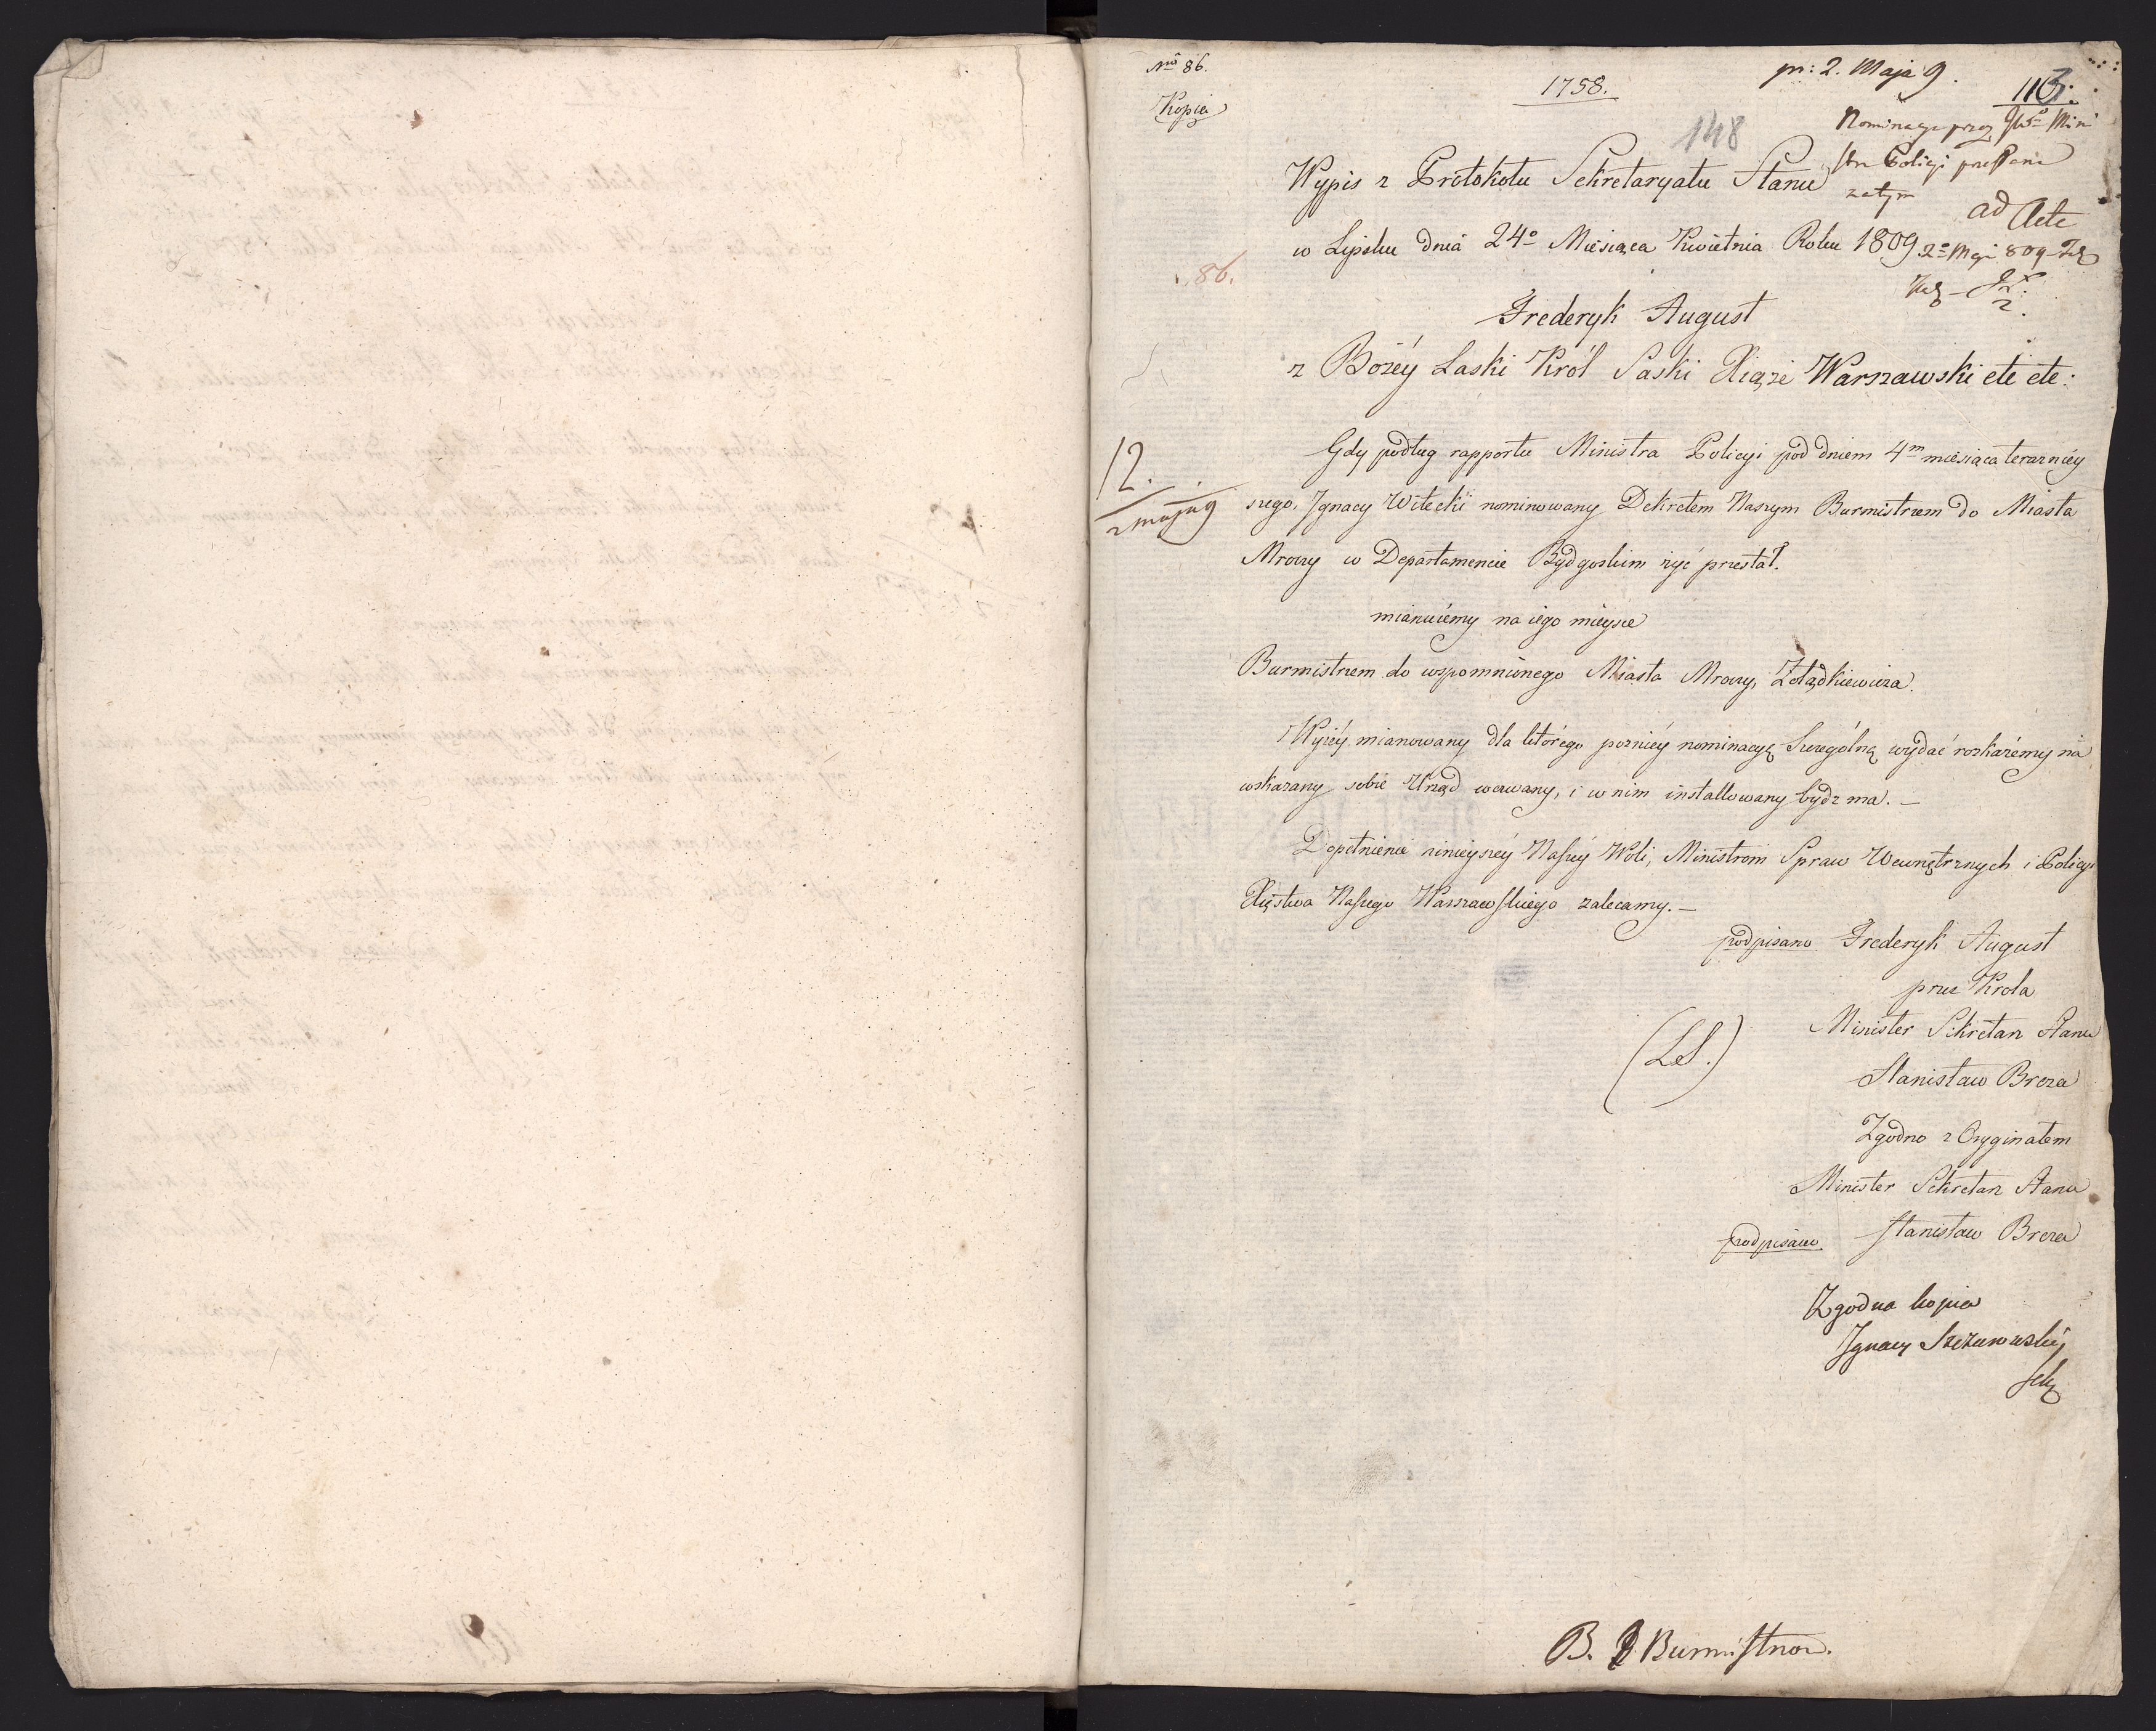 Nro 86.
Kopia
1758.
pr: 2. Maja 9.
113.
148
Nominacye przez JWo Mini
stra Policyi przesłane
zatym
ad Acta
2o Maja 809
Wypis z Protokołu Sekretaryatu Stanu
w Lipsku dnia 24o Miesiąca Kwietnia Roku 1809
86.
Frederyk August
z Bożéy Łaski Król Saski Xiąże Warszawski etc etc:
12.
2 maja 9
Gdy podług rapportu Ministra Policyi pod dniem 4m miesiąca terazniéy
szego, Jgnacy Witecki nominowany Dekretem Naszym Burmistrzem do Miasta
Mroczy w Departamencie Bydgoskim żyć przestał.
mianuiemy na iego mieysce
Burmistrzem do wspomnionego Miasta Mroczy, Żołądkiewicza.
Wyżéy mianowany dla którego pozniéy nominacyą Szczególną wydać roskażemy na
wskazany sobie Urząd wezwany, i w nim installowany bydz ma. —
Dopełnienie ninieyszéy Naszéy Woli, Ministrom Spraw Wewnętrznych i Policyi
Xięstwa Naszego Warszawskiego zalecamy. —
podpisano Frederyk August
przez Krola
Minister Sekretarz Stanu
(LS.)
Stanisław Breza
Zgodno z Oryginałem
Minister Sekretarz Stanu
podpisano Stanisław Breza
Zgodna kopia
Jgnacy
Sek
B. Burmistrzow.